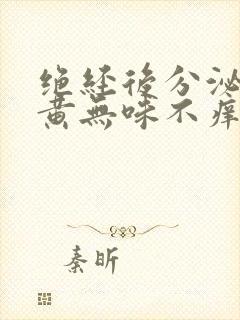 绝经後分泌
黄無味不痒
秦昕